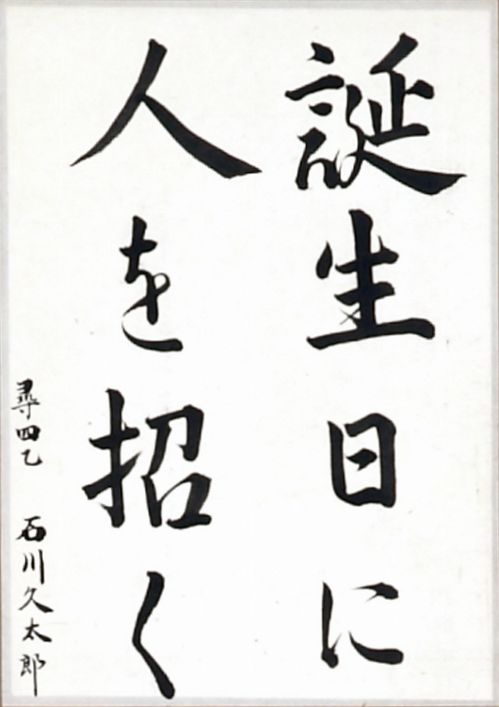 誕生日に
人を招く
尋四乙 石川久太郎